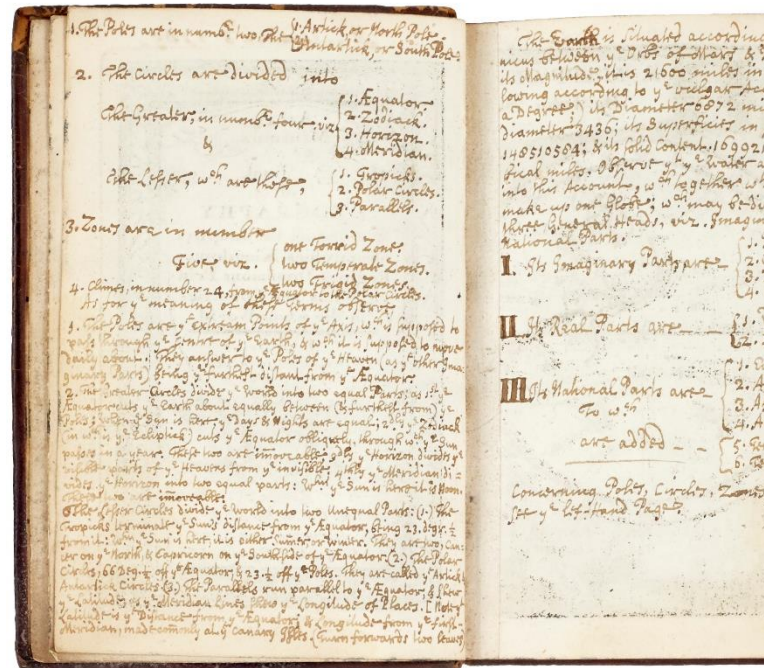 1. The Poles are in numbr. two, The { 1. Artick, or North Pole.
2. Antartick, or South Pole.
2. The Circles are divided into
The Greater, in numbr. four, viz { 1. Æquator
2. Zodiack.
3. Horizon.
4. Meridian.
&
The Lesser, wch are these, { 1. Tropicks.
2. Polar Circles.
3. Parallels.
3. Zones are in number
Five, viz. { one Torrid Zone,
two Temperate Zones.
two Frigid Zones.
4. Climes, in number 24, from ye Æquator to the Polar Circles.
As for ye meaning of these Terms observe
1. The Poles are ye Extream Points of ye Axis, wch is supposed to
pass through ye Centre of ye Earth, & wch it is supposed to move
daily about: They answer to ye Poles of ye Heaven (as ye other Ima-
ginary Parts) being ye furthest distant from ye Æquator.
2. The Greater Circles divide ye World into two equal Parts; as 1st ye
Æquator cuts ye Earth about equally between (& furthest from) ye
Poles; when ye Sun is here, ye Days & Nights are equal; 2ly ye Zodiack
(in wch is ye Ecliptick) cuts ye Æquator obliquely, through wch ye Sun
passes in a year. These two are imoveable. 3ly ye Horizon divides ye
visible parts of ye Heavens from ye invisible; 4thly ye Meridian di-
vides ye Horizon into two equal parts: When ye Sun is here it is Noon.
These two are moveable.
The Lesser Circles divide ye World into two Unequal Parts: (1.) The
Tropicks terminate ye Sun's distance from ye Æquator, being 23. degr. ½
from it: When ye Sun is here it is either Sumer or Winter. They are two, Can-
cer on ye North, & Capricorn on ye South side of ye Æquator. (2.) The Polar
Circles, 66 Deg. ½ off ye Æquator, & 23. ½ off ye Poles. They are called ye Artick &
Antartick Circles. (3.) The Parallels run parallel to ye Æquator, & shew
ye Latitude, as ye Meridian Lines show ye Longitude of Places. [Note ye
Latitude is ye Distance from ye Æquator; & Longitude from ye first
Meridian, made comonly at ye Canary Isles. (Turn forwards two leaves
The Earth is situated accordin
nicus between ye Orbs of Mars &
its Magnitude, it is 21600 miles in
lowing according to ye vulgar Acc
a Degree;) its Diameter 6872 mi
Diameter 3436; its Superficies in
148510584; & its Solid Content. 16992
bical miles. Observe yt ye Water
into this Account, wch together wth
make up one Globe; wch may be di
three General Heads, viz. Imagin
National Parts.
I. Its Imaginary Parts are { 1.
2.
3.
4.
II. Its Real Parts are { 1.
2.
III Its National Parts are
To wch
are added
1.
2. A
3. A
4. A
5.
6.
Concerning Poles, Circles, Zones
see ye left Hand Page